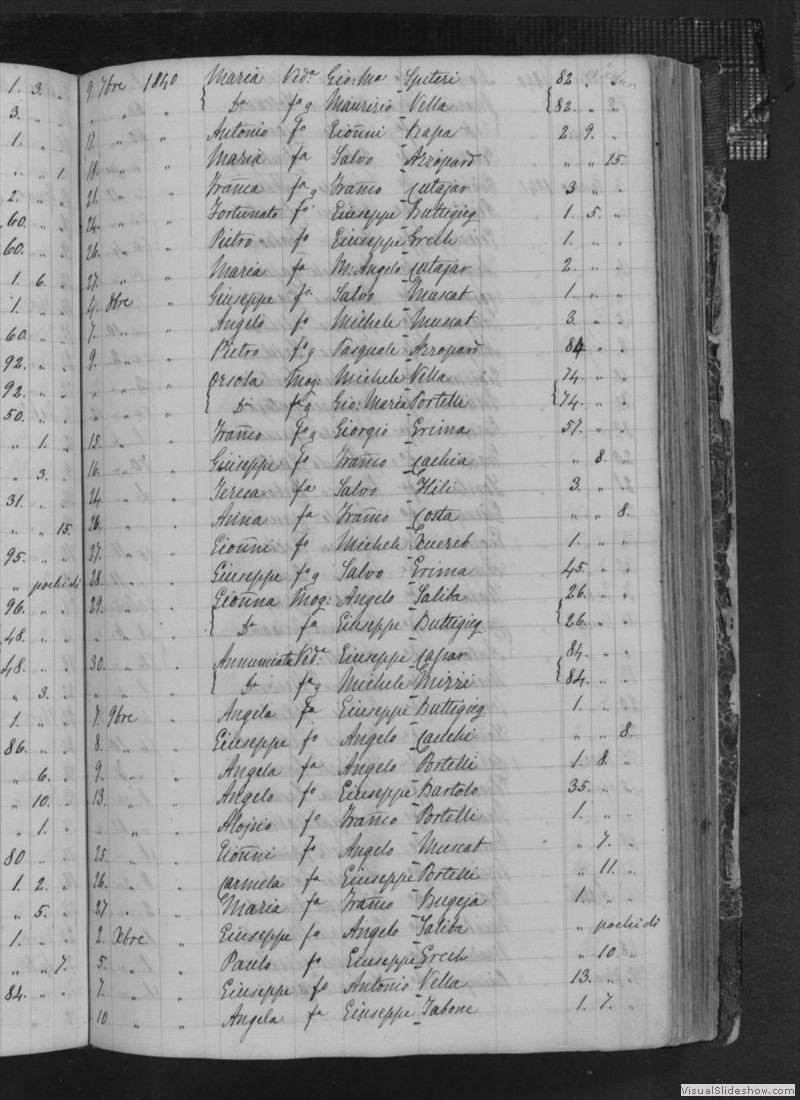 9. 7bre 1840 Maria Veda Gio: Ma Spiteri 82 " "
" " " { Da fa g Maurizio Vella { 82. " "
17. " " Antonio fo Gioñni Zrapa 2. 9. "
18. " " Maria fa Salvo Azzopard " " 15.
21. " " Frañca fa g Frañco Cutajar 3 " "
24. " " Fortunato fo Giuseppe Buttigieg 1. 5. "
26. " " Pietro fo Giuseppe Grech 1. " "
27. " " Maria fa M: Angelo Cutajar 2. " "
4. 8bre " Giuseppe fo Salvo Muscat 1. " "
7. " " Angelo fo Michele Muscat 3. " "
9. " " Pietro fo g Pasquale Azzopard 84 " "
" " " Orsola Mog: Michele Vella 74. " "
{ Da fa g Gio: Maria Portelli { 74. " "
15. " " Frañco fo g Giorgio Grima 57. " "
16. " " Giuseppe fo Frañco Cachia " 8. "
24. " " Teresa fa Salvo Hili 3. " "
26. " " Anna fa Frañco Costa " " 8.
27. " " Gioñni fo Michele Xuereb 1. " "
28. " " Giuseppe fo g Salvo Grima 45. " "
29. " " Gioñna Mog: Angelo Saliba 26. " "
" " " { Da fa Giuseppe Buttigieg { 26. " "
30. " " Annunziata Veda: Giuseppe Caspar 84. " "
" " " { Da fa g Michele Mizzi { 84. " "
7. 9bre " Angela fa Giuseppe Buttigieg 1. " "
8. " " Giuseppe fo Angelo Cauchi " " 8.
9. " " Angela fa Angelo Portelli 1. 8. "
13. " " Angelo fo Giuseppe Bartolo 35. " "
" " Aloisio fo Frañco Portelli 1. " "
25. " " Gioñni fo Angelo Muscat " 7. "
26. " " Carmela fa Giuseppe Portelli " 11. "
27 " " Maria fa Frañco Bugeja 1. " "
2. Xbre " Giuseppe fo Angelo Saliba " pochi di
5. " " Paulo fo Giuseppe Grech " 10. "
7. " " Giuseppe fo Antonio Vella 13. " "
10 " " Angela fa Giuseppe Tabone 1. 7. "
1. 3. "
3. " "
1. " "
" " 1.
2. " "
60. " "
60. " "
1. 6. "
1. " "
60. " "
92. " "
92. " "
50. " "
" 1. "
" 3. "
31. " "
" " 15.
95. " "
" pochi di
96. " "
48. " "
48. " "
" 3. "
1. " "
86. " "
" 6. "
" 10. "
" 1. "
80 " "
1. 2. "
" 5. "
1. " "
" " 7.
84. " "
VisualSlideshow.com